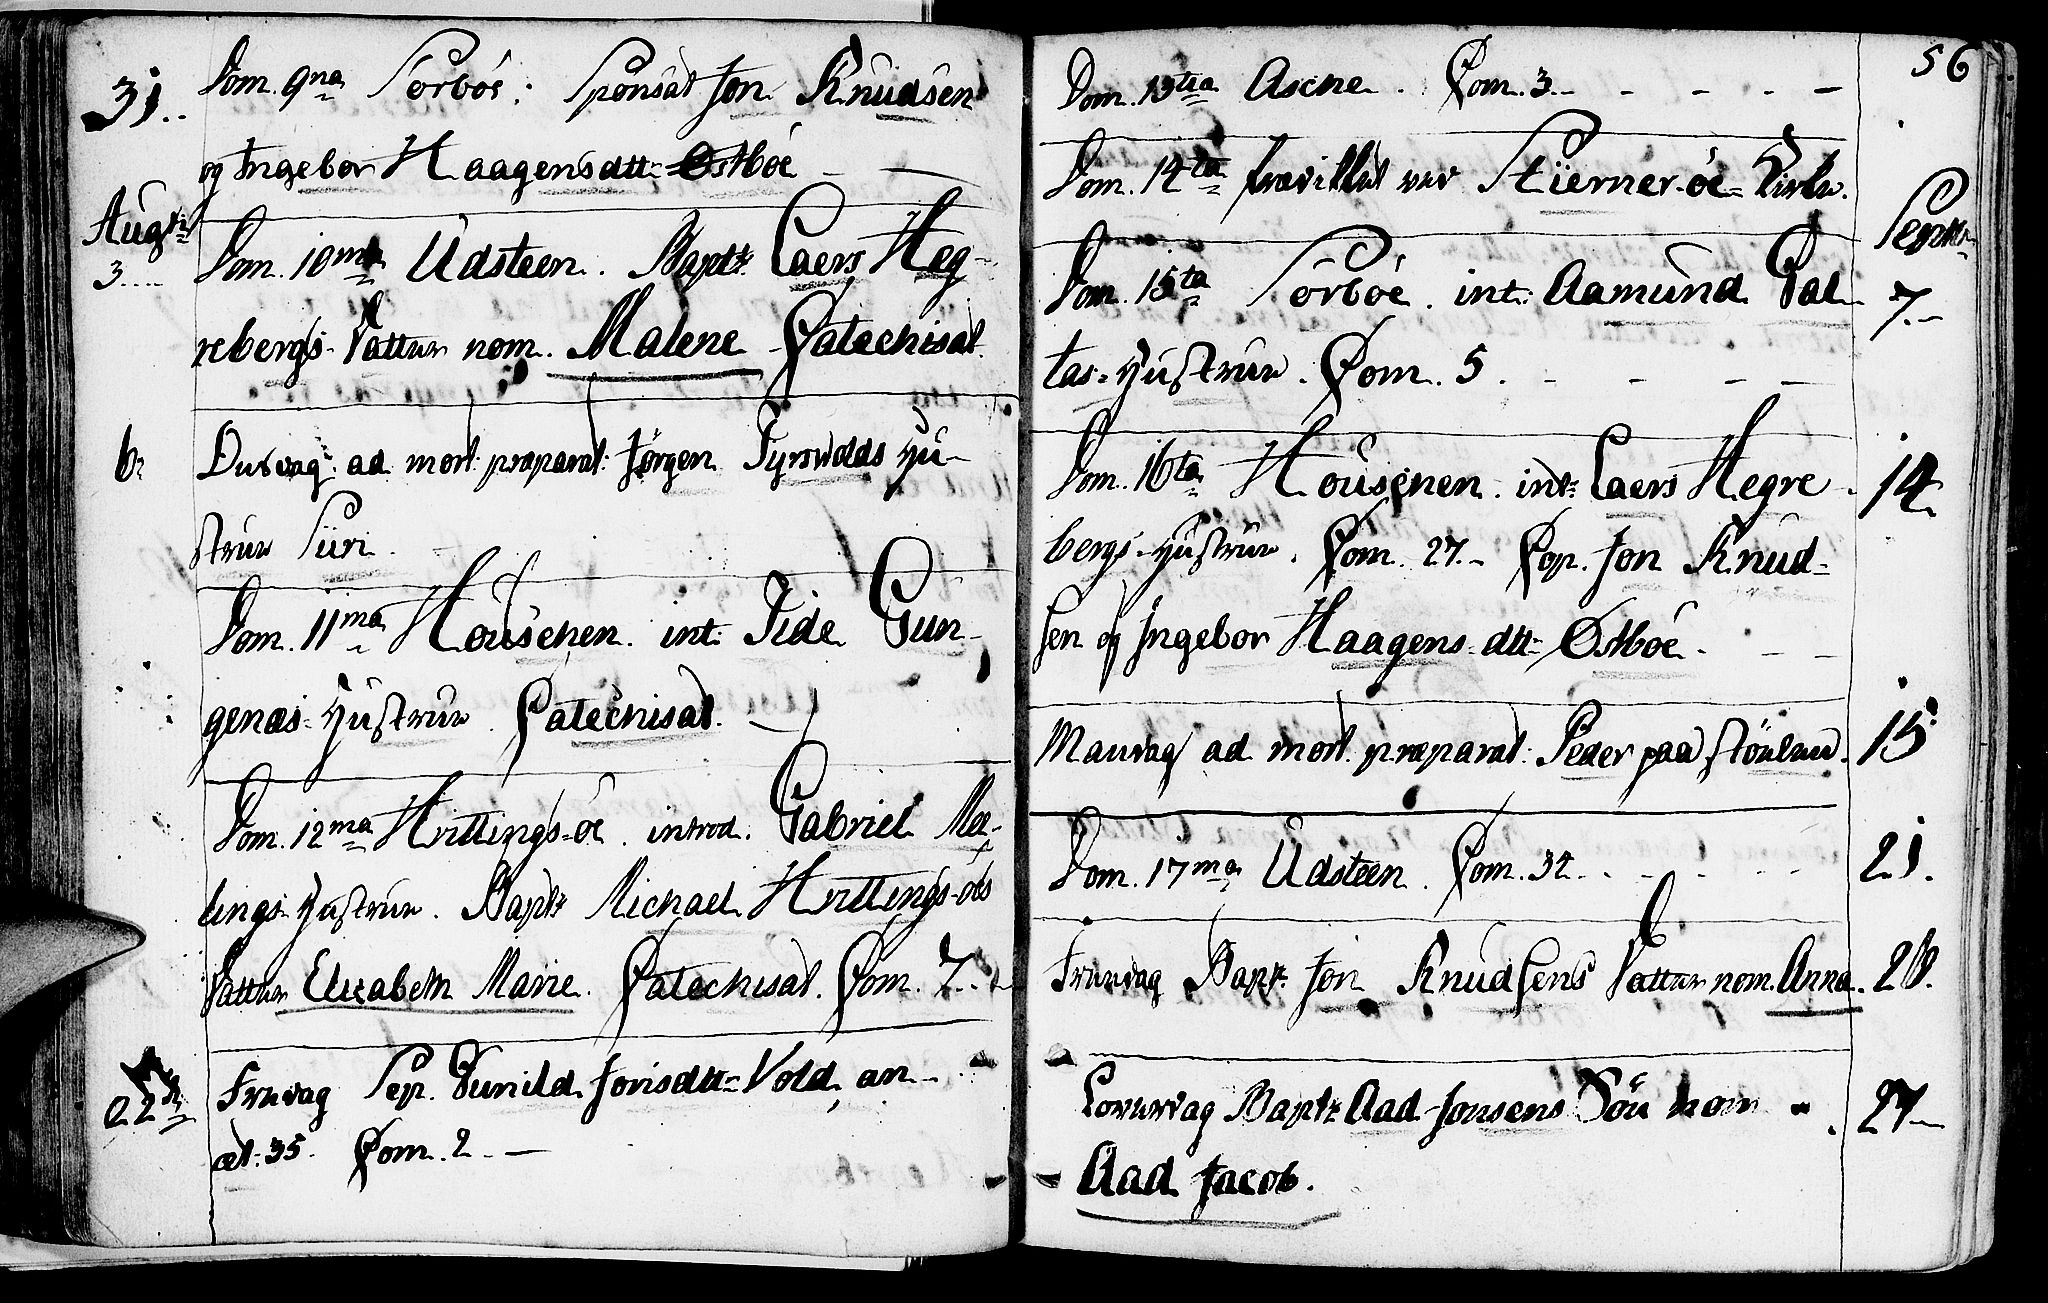 31.. Dom. 9na Sörböe: Sponsat Jon Knudsen
og Ingebor Haagensdtt= Østböe - -
Augti
3.... Dom. 10ma Udsteen. Bapt: Laers Heg-
rebergs Datter nom. Malene Catechisat.
6. Onsdag ad mort: præparat: Jörgen Tyrsvolds Hu-
strue Siiri.
Dom. 11ma Housenen. int: Tide Gun-
genæs-Hustrue. Catechisat.
Dom. 12ma Hvittings-öe. introd. Gabriel Me-
lings-Hustrue. Bapt: Michael Hvittings-öes
Datter Elisabeth Marie. Catechisat. Com. 7..
22. Fredag Sep. Gunild Jonsdtt= Vold, an-
æt: 35. Com. 2. -
56
Dom. 13tia Aschе. Com. 3.. - - - - -
Dom. 14ta præviket ved Stierner-öe= Kirke.
Septbr.
Dom. 15ta Sörböe. int: Aamund Gal- 7.-
tas=Hustrue. Com. 5. - - - -
Dom. 16ta Housenen. int: Laers Hegre- 14.
bergs-Hustrue. Com. 27.- Cop. Jon Knud-
sen og Ingebor Haagens-dtt= Østböe. - -
Mandag ad mort. præparat: Peder paa Stöelen. 15.
Dom. 17ma Udsteen. Com. 34. . - - - - 21.
Fredag Bapt: Jon Knudsens Datter nom. Anna. 26.
Löverdag Bapt: Aad Jonsens Sön nom. 27.
Aad Jacob.